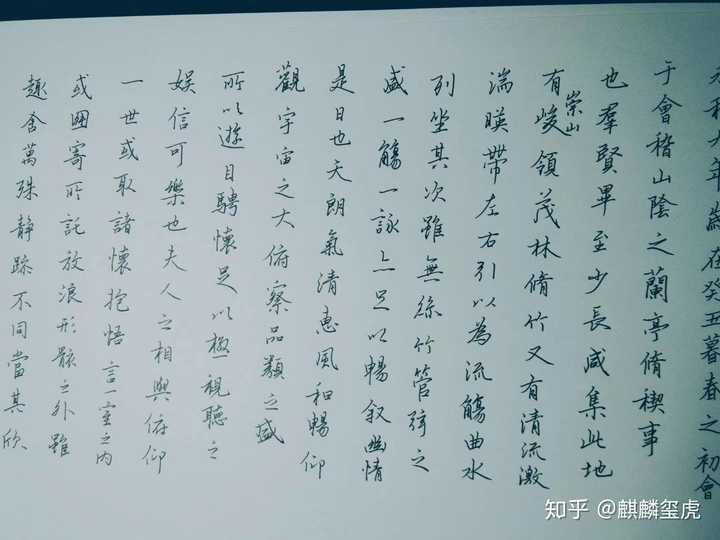 永和九年歲在癸丑暮春之初會
于會稽山陰之蘭亭脩稧事
也羣賢畢至少長咸集此地
有崇山峻領茂林脩竹又有清流激
湍暎帶左右引以為流觴曲水
列坐其次雖無絲竹管弦之
盛一觴一詠亦足以暢叙幽情
是日也天朗氣清惠風和暢仰
觀宇宙之大俯察品類之盛
所以遊目騁懷足以極視聽之
娛信可樂也夫人之相與俯仰
一世或取諸懷抱悟言一室之內
或因寄所託放浪形骸之外雖
趣舍萬殊靜躁不同當其欣
知乎 @麒麟玺虎